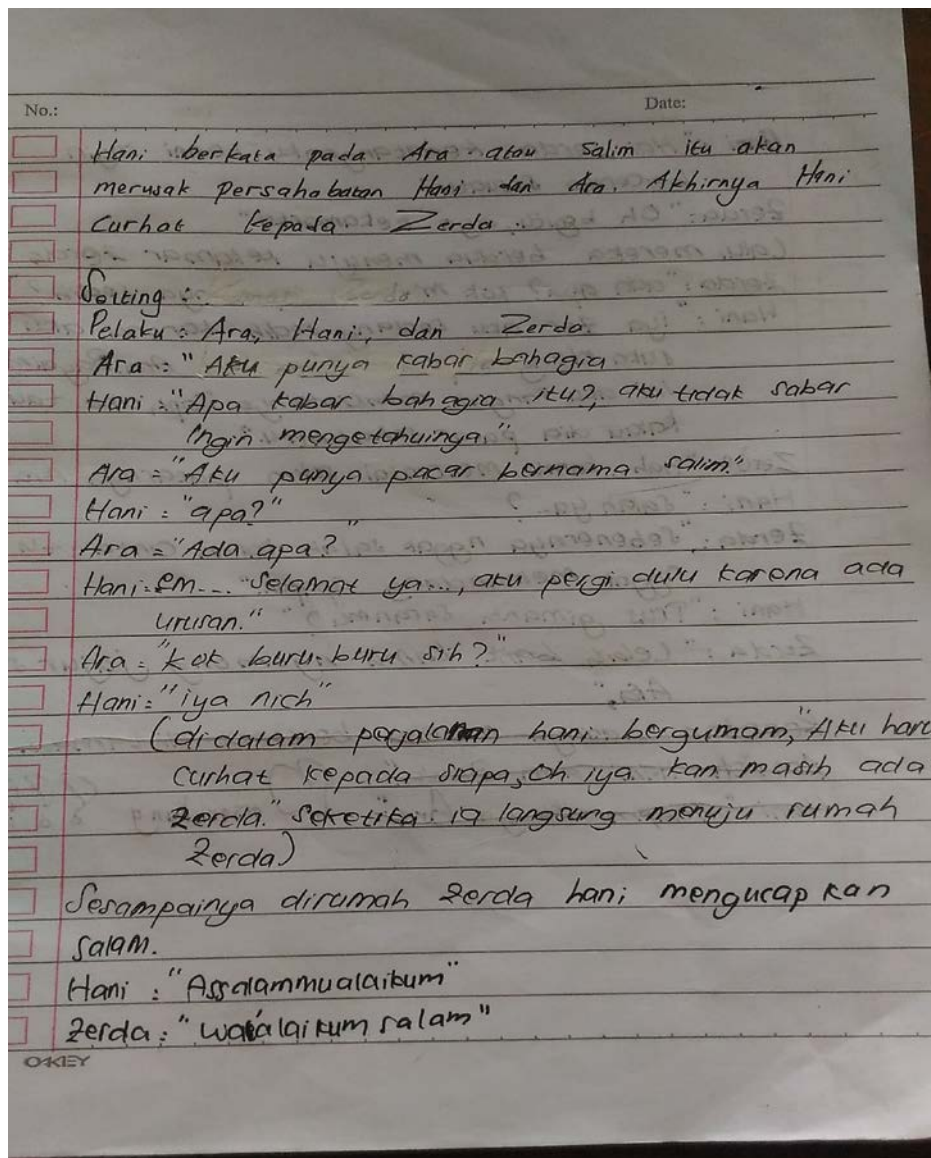 No.: Date:
Hani berkata pada Ara atau Salim itu akan
merusak persahabatan Hani dan Ara. Akhirnya Hani
Curhat kepada Zerda.
Setting :
Pelaku : Ara, Hani, dan Zerda
Ara : "Aku punya kabar bahagia
Hani : "Apa kabar bahagia itu?, aku tidak sabar
ingin mengetahuinya"
Ara : "Aku punya pacar bernama salim."
Hani : "apa?"
Ara : "Ada apa?"
Hani : em... "Selamat ya..., aku pergi dulu karena ada
urusan."
Ara : "kok buru-buru sih?"
Hani : "iya nich"
(didalam perjalanan hani bergumam, "Aku haru
curhat kepada siapa, Oh iya kan masih ada
Zerda." Seketika ia langsung menuju rumah
Zerda)
Sesampainya dirumah Zerda hani mengucapkan
salam.
Hani : "Assalammualaikum"
Zerda : "walaikum salam"
OKEY